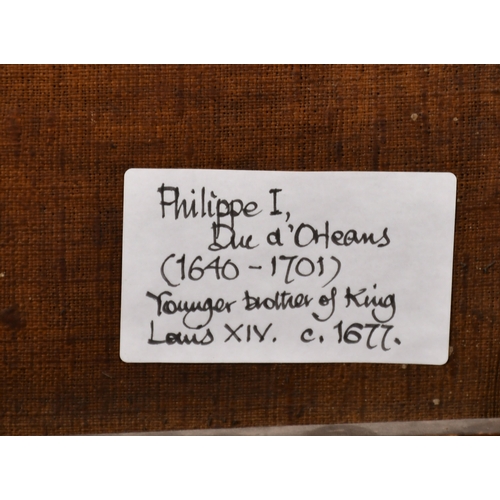 Philippe I,
Duc d'Orleans
(1640-1701)
Younger brother of King
Louis XIV. c. 1677.